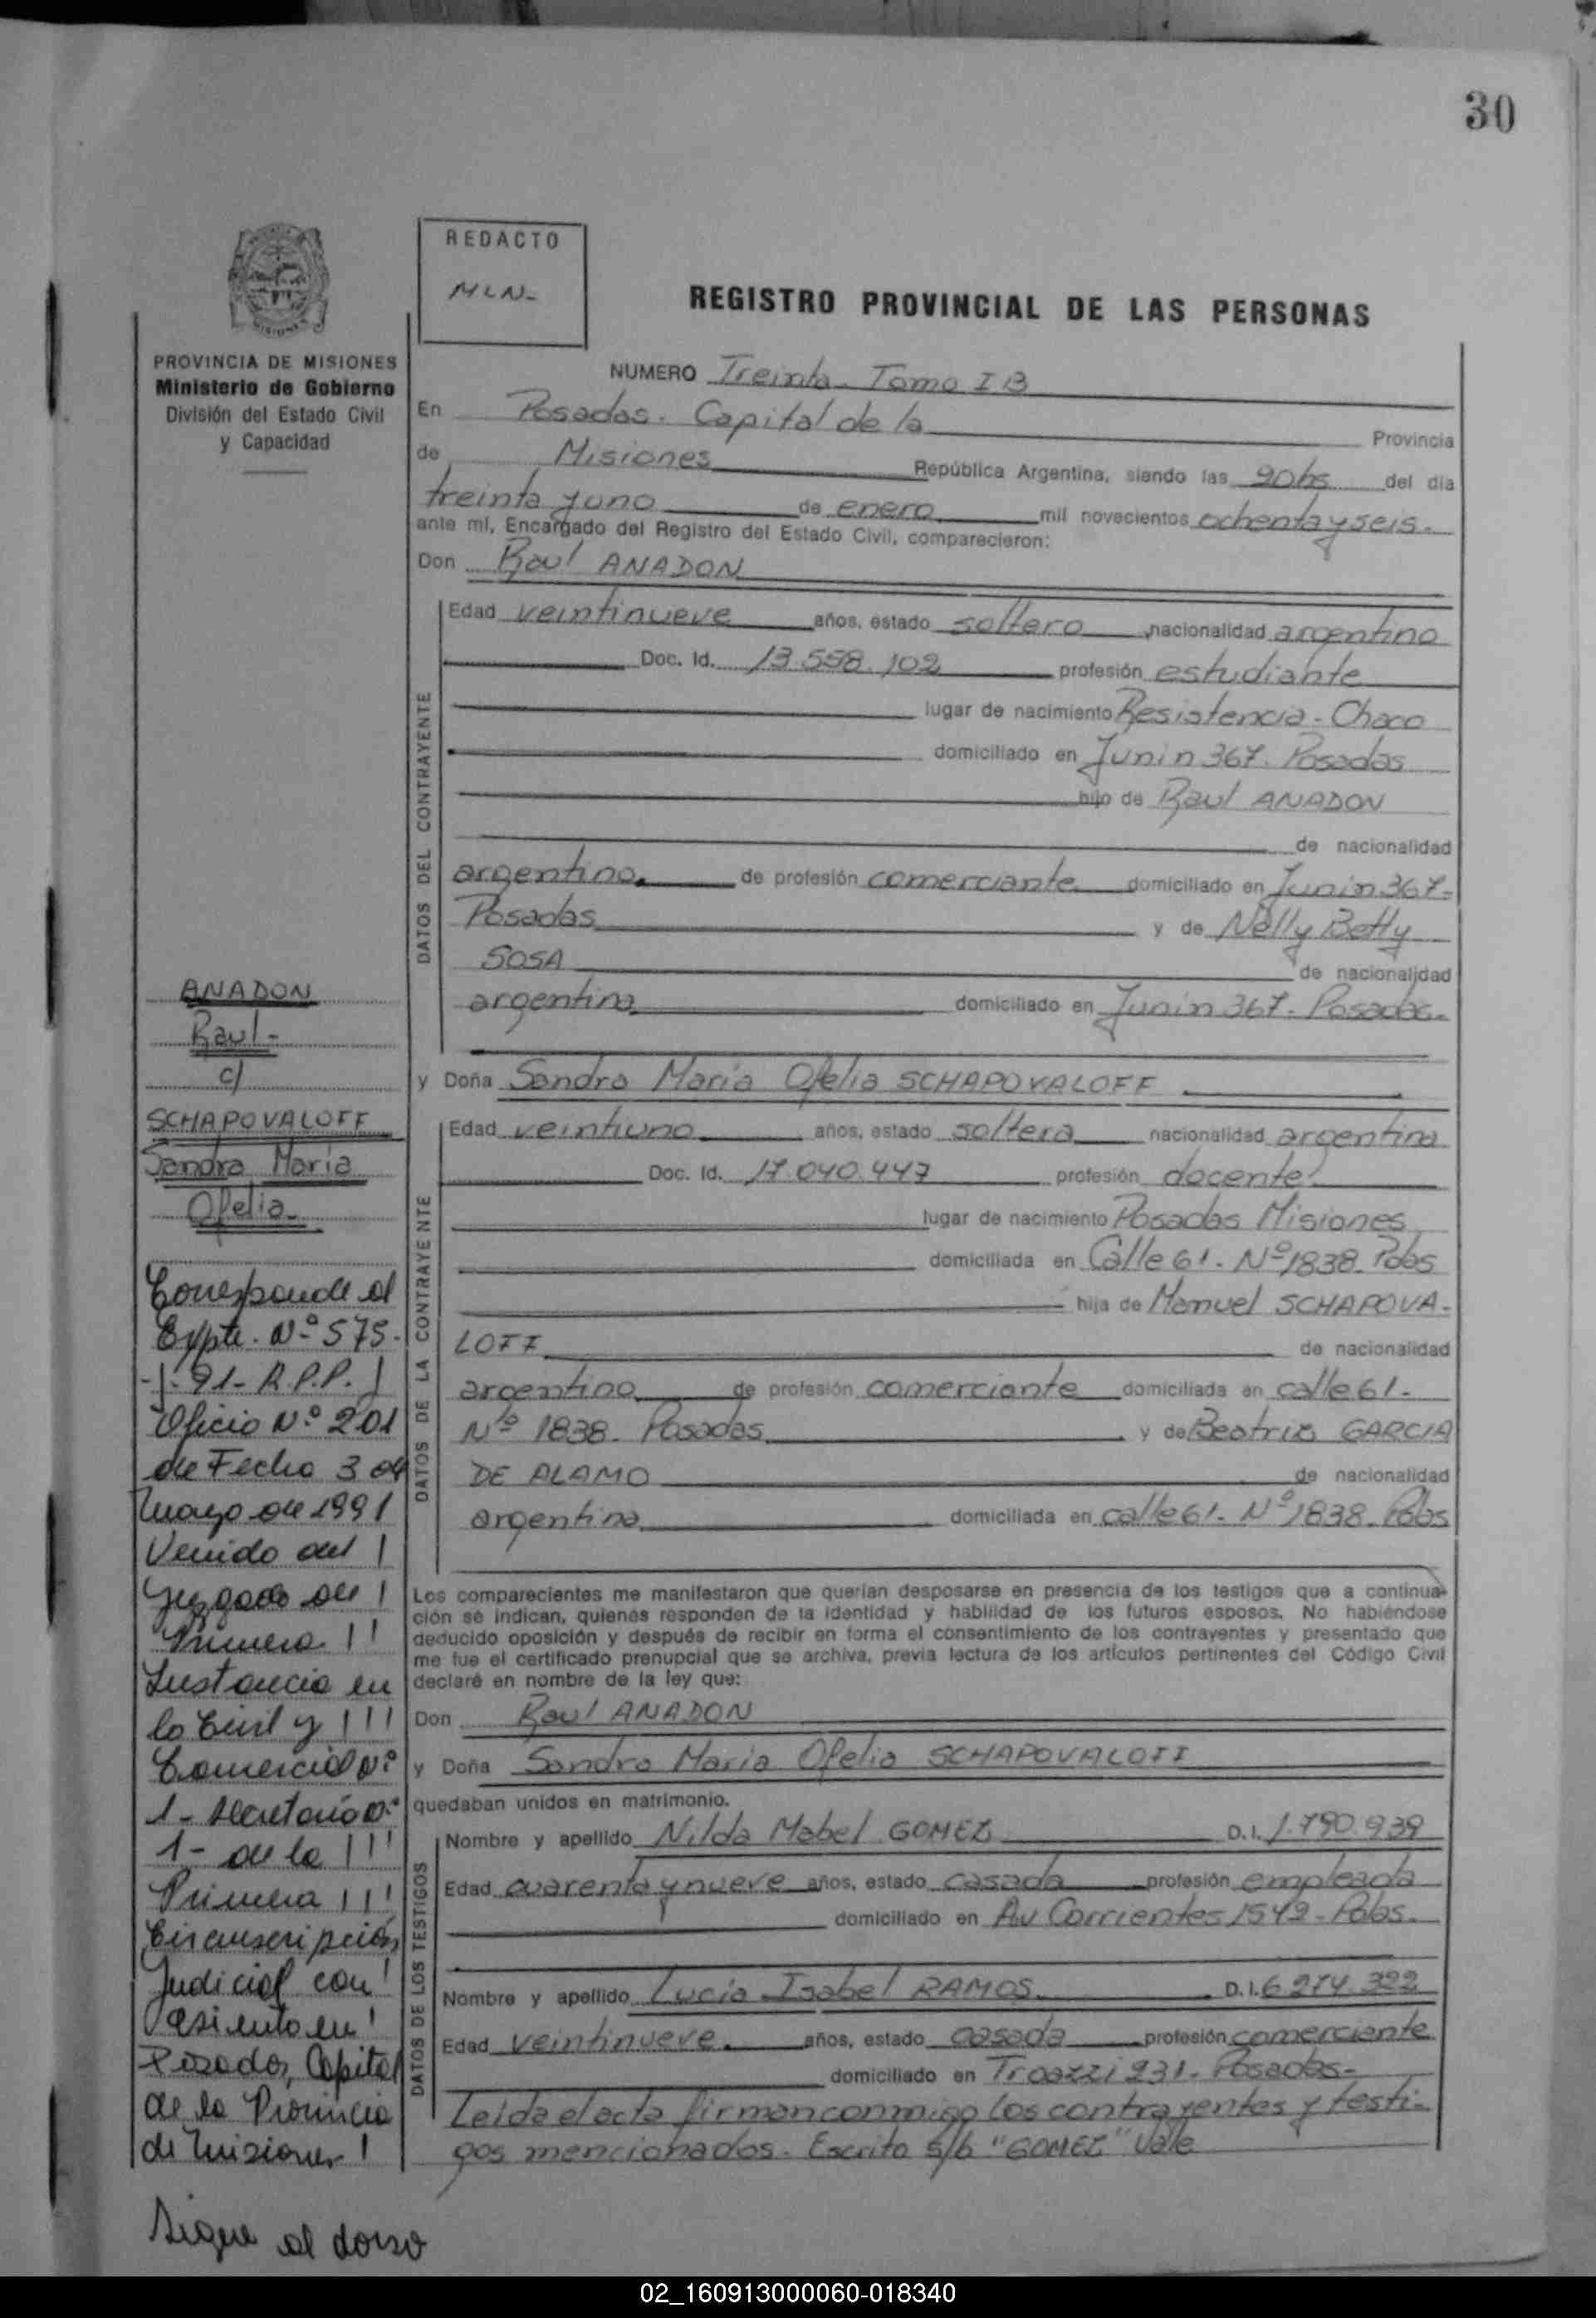 30
REDACTO
MLN-
REGISTRO PROVINCIAL DE LAS PERSONAS
MISIONES
PROVINCIA DE MISIONES
Ministerio de Gobierno
División del Estado Civil
y Capacidad
NUMERO Treinta- Tomo I B
En Posadas. Capital de la Provincia
de Misiones República Argentina, siendo las 20hs del día
treinta y uno de enero mil novecientos ochenta y seis.
ante mí, Encargado del Registro del Estado Civil, comparecieron:
Don Raul ANADON
DATOS DEL CONTRAYENTE
Edad veintinueve años, estado soltero nacionalidad argentino
Doc. Id. 13.558.102 profesión estudiante
lugar de nacimiento Resistencia - Chaco
domiciliado en Junin 367. Posadas
hijo de Raul ANADON
de nacionalidad
argentino. de profesión comerciante domiciliado en Junin 367-
Posadas y de Nelly Betty
SOSA de nacionalidad
argentina domiciliado en Junin 367- Posadas.
y Doña Sandra Maria Ofelia SCHAPOVALOFF
DATOS DE LA CONTRAYENTE
Edad veintiuno años, estado soltera nacionalidad argentina
Doc. Id. 17.040.447 profesión docente
lugar de nacimiento Posadas Misiones
domiciliada en Calle 61. Nº 1838. Pdas
hija de Manuel SCHAPOVA-
LOFF de nacionalidad
argentino de profesión comerciante domiciliada en calle 61-
Nº 1838. Posadas y de Beatriz GARCIA
DE ALAMO de nacionalidad
argentina domiciliada en calle 61- Nº 1838. Pdas
Los comparecientes me manifestaron que querían desposarse en presencia de los testigos que a continua-
ción se indican, quienes responden de la identidad y habilidad de los futuros esposos. No habiéndose
deducido oposición y después de recibir en forma el consentimiento de los contrayentes y presentado que
me fue el certificado prenupcial que se archiva, previa lectura de los artículos pertinentes del Código Civil
declaré en nombre de la ley que:
Don Raul ANADON
y Doña Sandra Maria Ofelia SCHAPOVALOFF
quedaban unidos en matrimonio.
DATOS DE LOS TESTIGOS
Nombre y apellido Nilda Mabel GOMEZ D.I. 1.790.939
Edad cuarenta y nueve años, estado casada profesión empleada
domiciliado en Av Corrientes 1549- Pdas.
Nombre y apellido Lucia Isabel RAMOS D.I. 6.274.322
Edad veintinueve años, estado casada profesión comerciante
domiciliado en 931- Posadas-
Leida el acta firman conmigo los contrayentes y testi-
gos mencionados. Escrito s/b "GOMEZ" Vale
ANADON
Raul-
c/
SCHAPOVALOFF
Sandra Maria
Ofelia-
Corresponde al
Expte. Nº 575-
-J-91- R.P.P.
Oficio Nº 201
de Fecha 3 de
mayo de 1991
Venido del
Juzgado de
Primera
Instancia en
lo Civil y
Comercial Nº
1- Secretaría Nº
1- de la
Primera
Circunscripción
Judicial con
asiento en
Posadas, Capital
de la Provincia
de Misiones
Sigue al dorso
02_160913000060-018340